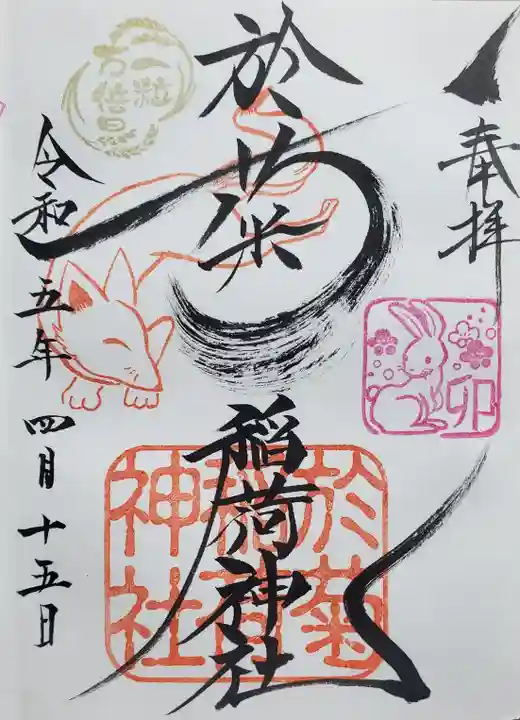 奉拝
卯
於菊
稲荷神社
於菊
稲荷
神社
令和五年四月十五日
一粒
万倍日